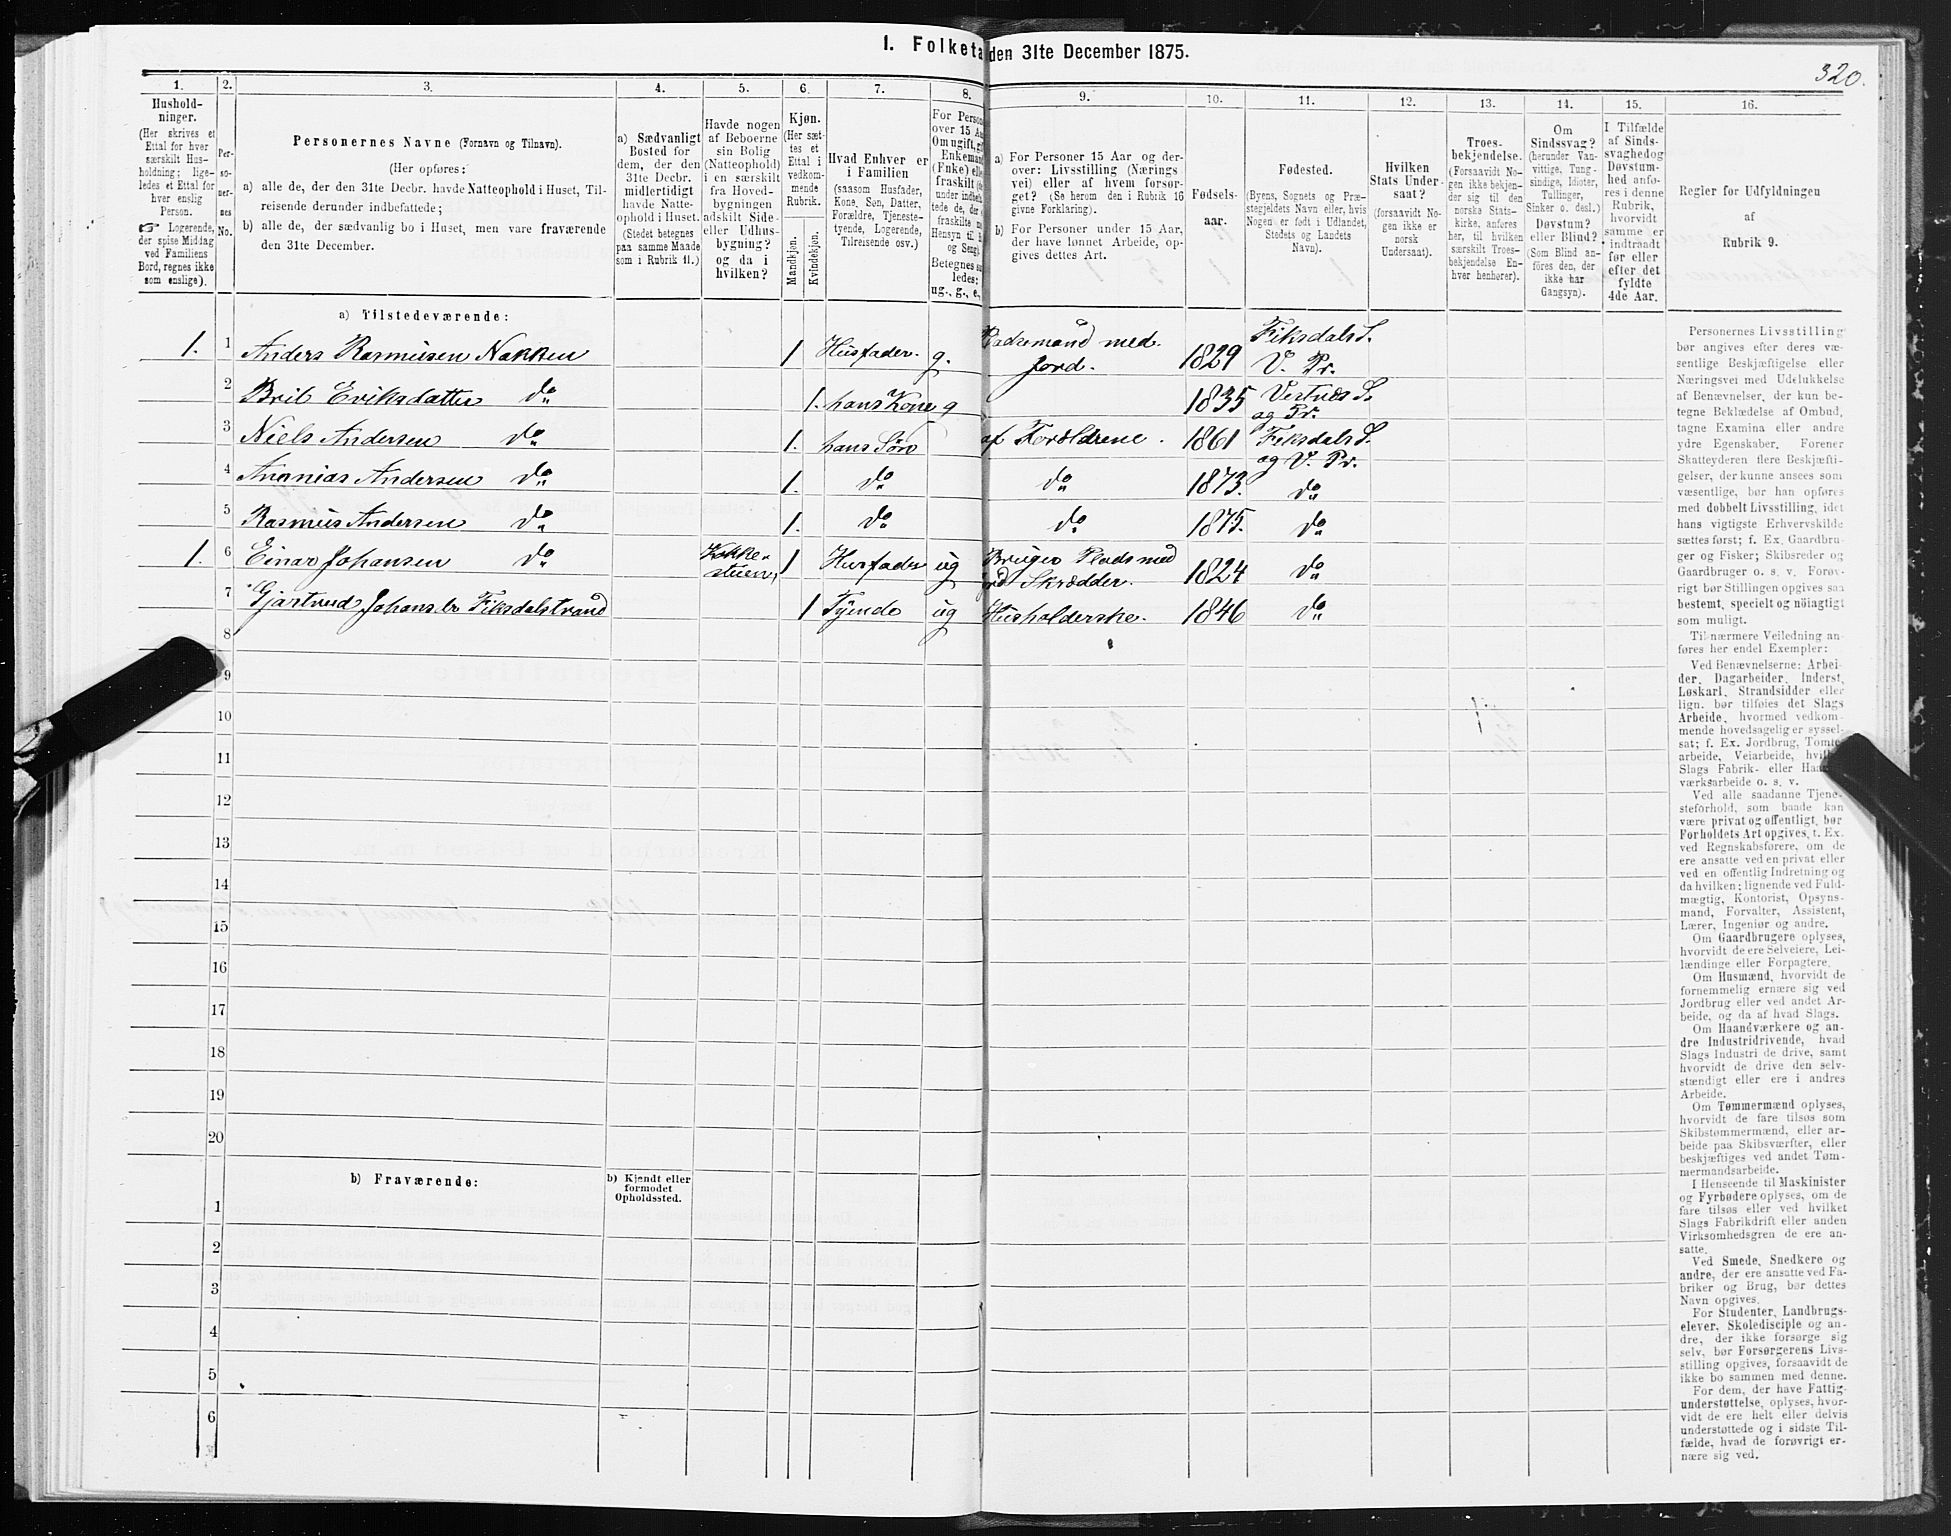 1. Folketa den 31te December 1875.
320.
1. 2. 3. 4. 5. 6. 7. 8. 9. 10. 11. 12. 13. 14. 15. 16.
Hushold-
ninger.
(Her skrives et
Ettal for hver
særskilt Hus-
holdning; lige-
ledes et Ettal for
hver enslig
Person.
☞ Logerende,
der spise Middag
ved Familiens
Bord, regnes ikke
som enslige).
Per-
so-
ner-
nes
No.
Personernes Navne (Fornavn og Tilnavn).
(Her opføres:
a) alle de, der den 31te Decbr. havde Natteophold i Huset, Til-
reisende derunder indbefattede;
b) alle de, der sædvanlig bo i Huset, men vare fraværende
den 31te December.
a) Sædvanligt
Bosted for
dem, der den
31te Decbr.
midlertidigt
havde Natte-
ophold i Huset.
(Stedet betegnes
paa samme Maade
som i Rubrik 11.)
Havde nogen
af Beboerne
sin Bolig
(Natteophold)
i en særskilt
fra Hoved-
bygningen
adskilt Side-
eller Udhus-
bygning?
og da i
hvilken?
Kjøn.
(Her sæt-
tes et
Ettal i
vedkom-
mende
Rubrik.
Mandkjøn.
Kvindekjøn.
Hvad Enhver er
i Familien
(saasom Husfader,
Kone, Søn, Datter,
Forældre, Tjeneste-
tyende, Logerende,
Tilreisende osv.)
For Person
over 15 Aa
Om ugift, gi
Enkeman
(Enke) elle
fraskilt (
under indbefa
tede de, der
fraskilte m
Hensyn til
og Seng)
Betegnes saa
ledes:
ug., g., e.,
a) For Personer 15 Aar og der-
over: Livsstilling (Nærings
vei) eller af hvem forsør-
get? (Se herom den i Rubrik 16
givne Forklaring).
b) For Personer under 15 Aar,
der have lønnet Arbeide, op-
gives dettes Art.
Fødsels-
aar.
Fødested.
(Byens, Sognets og Præ-
stegjeldets Navn eller, hvis
Nogen er født i Udlandet,
Stedets og Landets
Navn).
Hvilken
Stats Under-
saat?
(forsaavidt No-
gen ikke er
norsk
Undersaat).
Troes-
bekjendelse.
(Forsaavidt No-
gen ikke bekjen-
der sig til den
norske Stats-
kirke, anføres
her, til hvilken
særskilt Troes-
bekjendelse En-
hver henhører).
Om
Sindssvag?
(herunder Van-
vittige, Tung-
sindige, Idioter,
Tullinger,
Sinker o. desl.)
Døvstum?
eller Blind?
(Som Blind an-
føres den, der
ikke har
Gangsyn).
I Tilfælde
af Sinds-
svaghed og
Døvstum-
hed anfø-
res i denne
Rubrik,
hvorvidt
samme er
indtraadt
før eller
efter det
fyldte
4de Aar.
Regler for Udfyldningen
af
Rubrik 9.
a) Tilstedeværende:
1. 1 Anders Rasmusen Nakken 1 Husfader g. Pladsemand med Jord. 1829 Fiksdals S. V. Pr.
2 Brit Eriksdatter do 1. hans Kone g 1835 Vestnes S. og Pr.
3 Niels Andersen do 1. hans Søn af Forældrene. 1861 Fiksdals S. og V. Pr.
4 Ananias Andersen do 1. do do 1873. do
5 Rasmus Andersen do 1. do do 1875. do
1. 6 Einar Johansen do 1 Husfader ug Bruger Plads med Skrædder. 1824 do
7 Gjartrud Fiksdalstrand 1 Tyende ug Husholderske. 1846 do
8
9
10
11
12
13
14
15
16
17
18
19
20
b) Fraværende:
b) Kjendt eller
formodet
Opholdssted.
1
2
3
4
5
6
Personernes Livsstilling
bør angives efter deres væ-
sentlige Beskjæftigelse eller
Næringsvei med Udelukkelse
af Benævnelser, der kun be-
tegne Beklædelse af Ombud,
tagne Examina eller andre
ydre Egenskaber. Forener
Skatteyderen flere Beskjæfti-
gelser, der kunne ansees som
væsentlige, bør han opføres
med dobbelt Livsstilling, idet
hans vigtigste Erhvervskilde
sættes først; f. Ex. Gaardbru-
ger og Fisker; Skibsreder og
Gaardbruger o. s. v. Forøv-
rigt bør Stillingen opgives saa
bestemt, specielt og nöiagtigt
som muligt.
Til nærmere Veiledning an-
føres her endel Exempler:
Ved Benævnelserne: Arbei-
der, Dagarbeider, Inderst,
Løskarl, Strandsidder eller
lign. bør tilføies det Slags
Arbeide, hvormed vedkom-
mende hovedsagelig er syssel-
sat; f. Ex. Jordbrug, Tomte-
arbeide, Veiarbeide,
Slags Fabrik- eller
værksarbeide o. s. v.
Ved alle saadanne Tjene-
steforhold, som baade kan
være privat og offentligt, bør
Forholdets Art opgives, t. Ex.
ved Regnskabsførere, om de
ere ansatte ved en privat eller
ved en offentlig Indretning og
da hvilken; lignende ved Fuld-
mægtig, Kontorist, Opsyns-
mand, Forvalter, Assistent,
Lærer, Ingeniør og andre.
Om Gaardbrugere oplyses,
hvorvidt de ere Selveiere, Lei-
lændinge eller Forpagtere.
Om Husmænd, hvorvidt de
fornemmelig ernære sig ved
Jordbrug eller ved andet Ar-
beide, og da af hvad Slags.
Om Haandværkere og an-
dre Industridrivende, hvad
Slags Industri de drive, samt
hvorvidt de drive den selv-
stændigt eller ere i andres
Arbeide.
Om Tømmermænd oplyses,
hvorvidt de fare tilsøs som
Skibstømmermænd, eller ar-
beide paa Skibsværfter, eller
beskjæftiges ved andet Tøm-
mermandsarbeide.
I Henseende til Maskinister
og Fyrbødere oplyses, om de
fare tilsøs eller ved hvilket
Slags Fabrikdrift eller anden
Virksomhedsgren de ere an-
satte.
Ved Smede, Snedkere og
andre, der ere ansatte ved Fa-
briker og Brug, bør dettes
Navn opgives.
For Studenter, Landbrugs-
elever, Skoledisciple og an-
dre, der ikke forsørge sig
selv, bør Forsørgerens Livs-
stilling opgives, forsaavidt de
ikke bo sammen med denne.
For dem, der have Fattig-
understøttelse, oplyses, hvor-
vidt de ere helt eller delvis
understøttede og i sidste Til-
fælde, hvad de forøvrigt er-
nære sig ved.